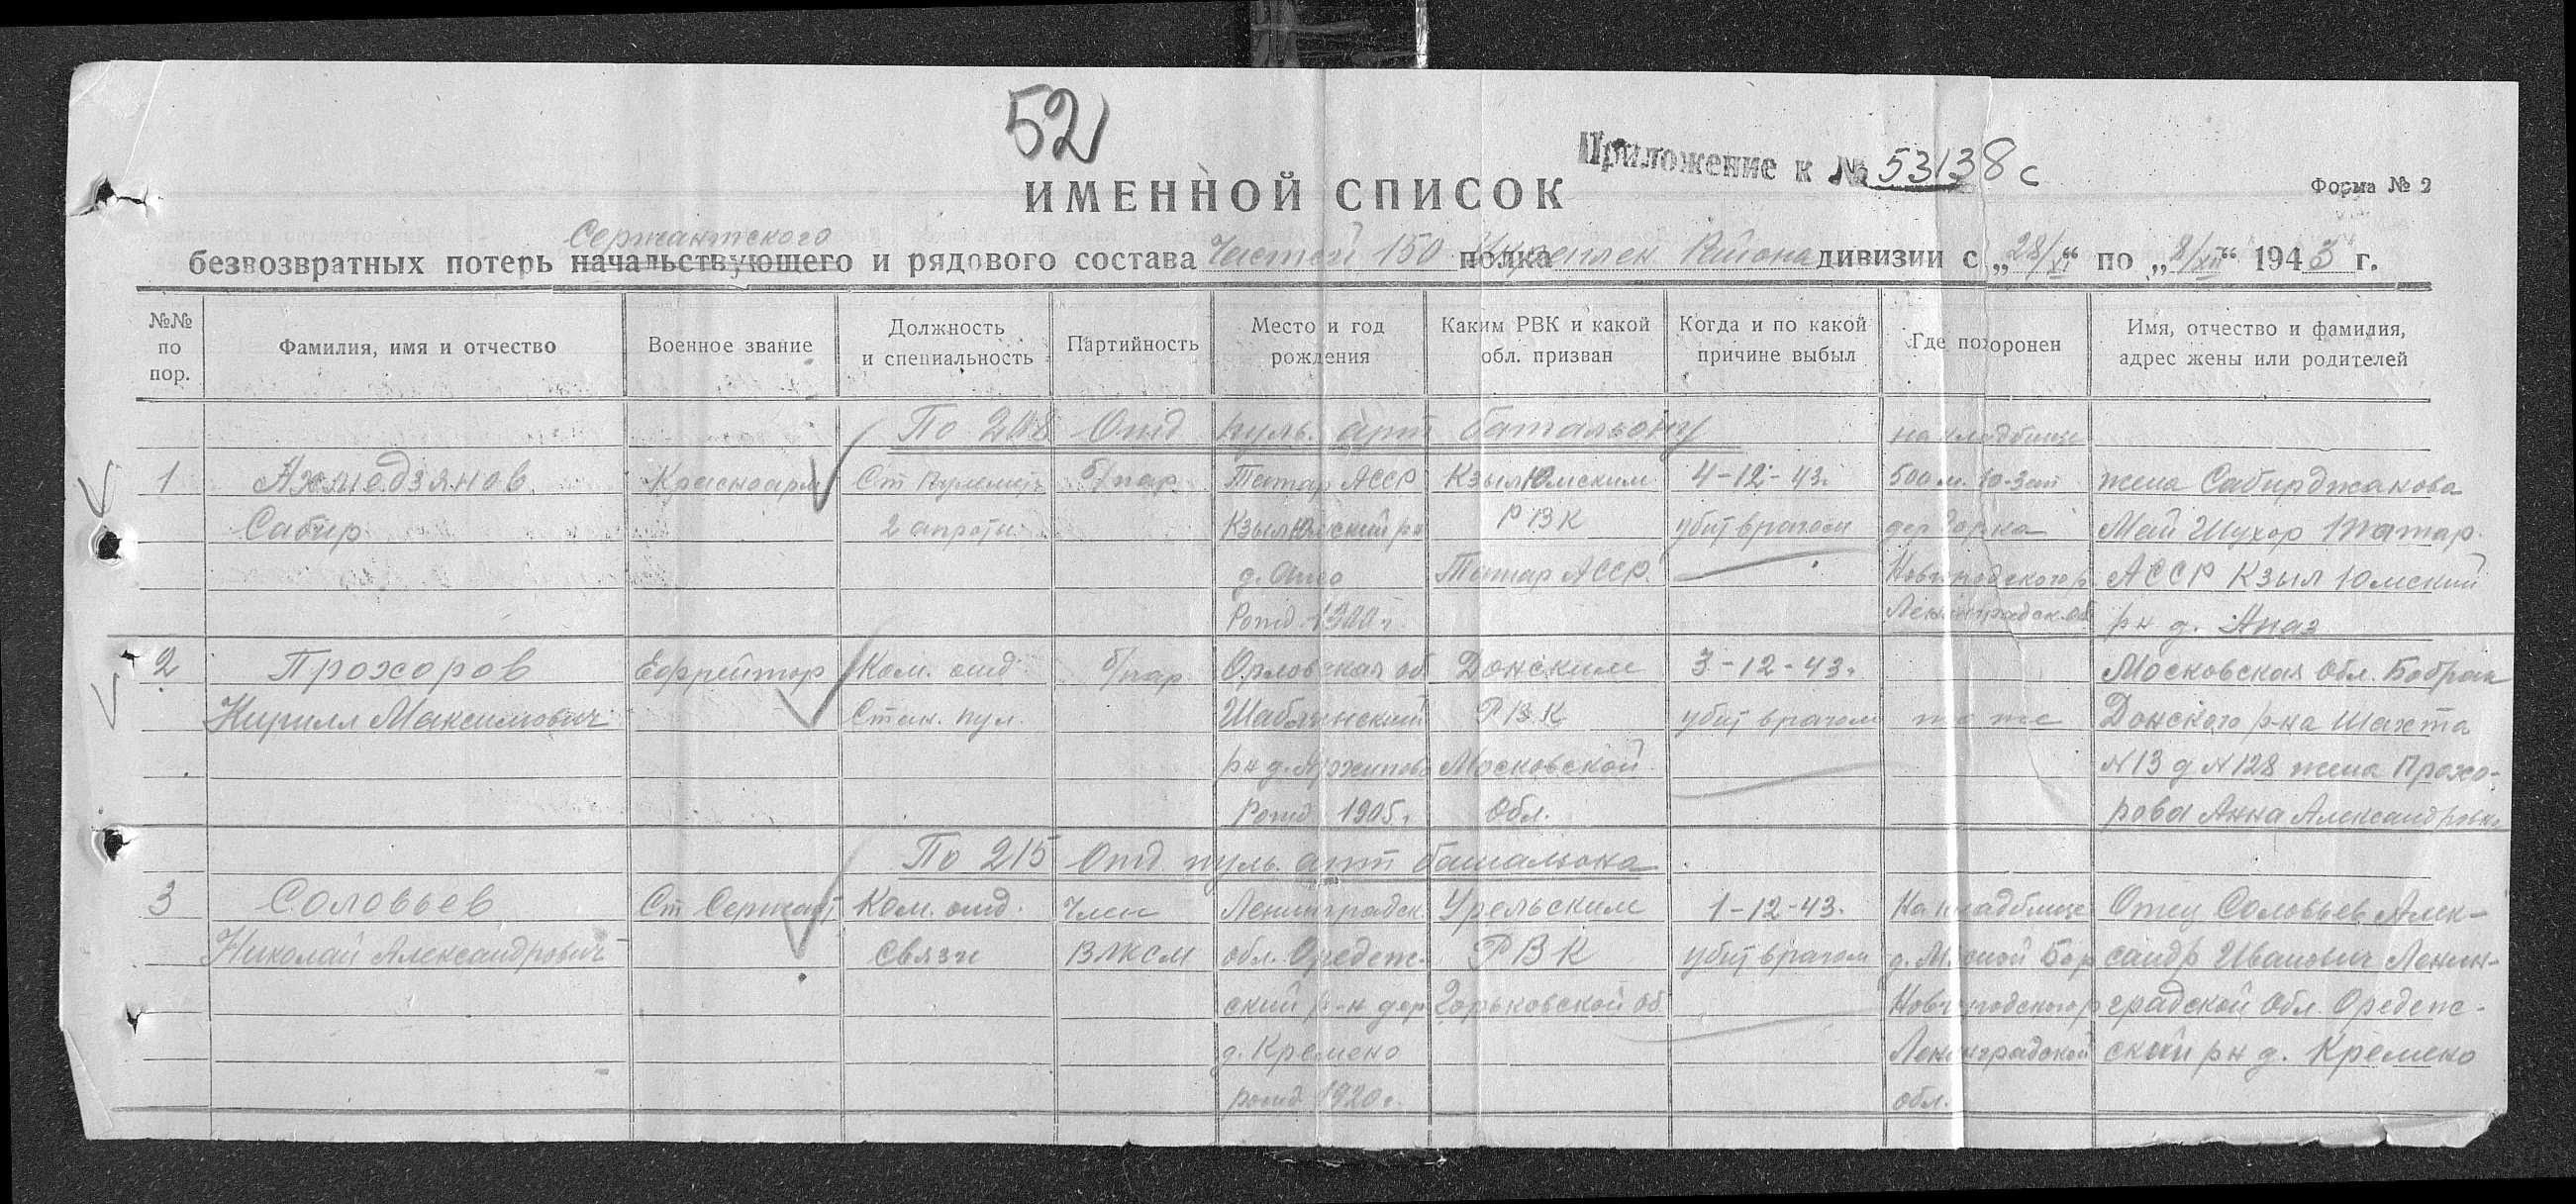 52
Приложение к № 53138с
ИМЕННОЙ СПИСОК
Форма № 2
Сержантского
безвозвратных потерь начальствующего и рядового состава Частей 150 полка Укреплен Района дивизии с „28/XI“ по „8/XII“ 1943 г.
№№ по пор.
Фамилия, имя и отчество
Военное звание
Должность и специальность
Партийность
Место и год рождения
Каким РВК и какой обл. призван
Когда и по какой причине выбыл
Где похоронен
Имя, отчество и фамилия, адрес жены или родителей
По Отд пуль. арт батальону
на кладбище
1 Ахмедзянов Красноарм Ст Пулеметч б/пар Татар АССР Кзыл Юмским 4-12-43г. 500 м. Ю-Зап жена Сабирджанова
Сабир РВК убит врагом дер Май Шухор Татар.
д. Татар АССР. Новгородского р АССР Кзыл Юмский
Рожд Ленинградск. об рн д.
2 Прохоров Ефрейтор Ком. отд б/пар Орловская об Донским 3-12-43г. Московская обл.
Кирилл Максимович Стан. пул. РВК убит врагом то же Донского р-на Шахта
рн д. Московской N13 д N128 жена Прохо-
Рожд 1905г. Обл. рова Анна Александровна
По 215 Отд пуль. арт батальона
3 Соловьев Ст Сержант Ком. отд. Член Ленинградск. 1-12-43. На кладбище Отец Соловьев Алек-
Николай Александрович связи ВЛКСМ обл. Оредеж- РВК убит врагом д. Мясной Бор сандр Иванович Ленин-
ский р-н дер Горьковской об Новгородского р градской Обл. Оредеж-
д. Кремено Ленинградской ский рн д. Кремено
рожд 1920г. обл.